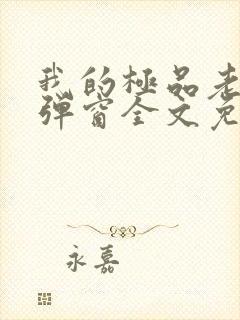 我的極品老
彈窗全文免
永嘉